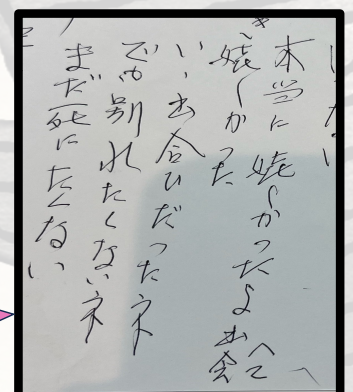 本当に 嬉しかったよ出会へて
嬉しかった
いゝ出合ひだったネ
でも別れたくないネ
まだ死にたくない